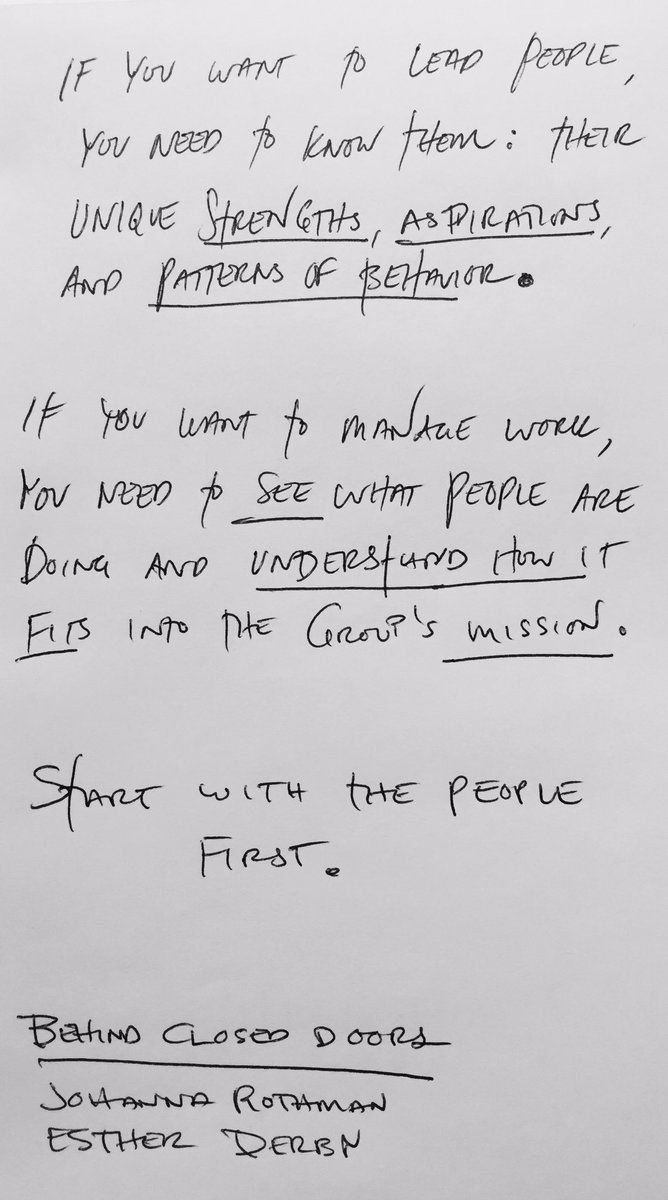 IF YOU WANT TO LEAD PEOPLE,
YOU NEED TO KNOW THEM: THEIR
UNIQUE STRENGTHS, ASPIRATIONS,
AND PATTERNS OF BEHAVIOR.
IF YOU WANT TO MANAGE WORK,
YOU NEED TO SEE WHAT PEOPLE ARE
DOING AND UNDERSTAND HOW IT
FITS INTO THE GROUP'S MISSION.
START WITH THE PEOPLE
FIRST.
BEHIND CLOSED DOORS
JOHANNA ROTHMAN
ESTHER DERBY